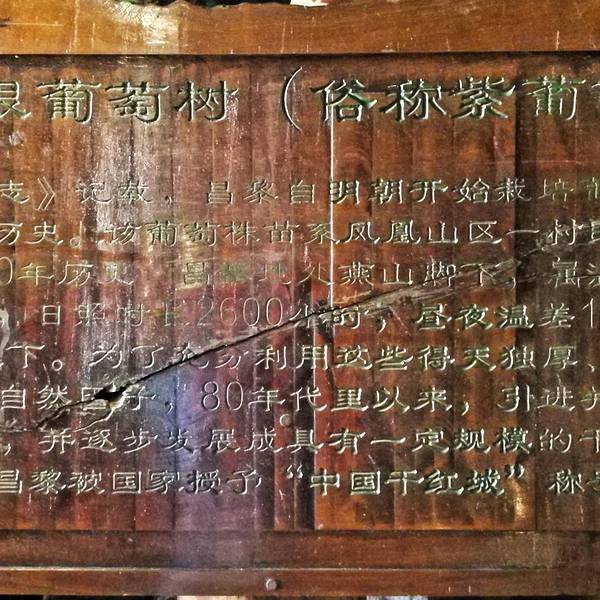 葡萄树（俗称紫葡
志》记载，昌黎自明朝开始栽培葡
历史。该葡萄株苗系凤凰山区一村民
0年历史 昌黎地处燕山脚下，属
，日照时长2600小时，昼夜温差1
下。为了充分利用这些得天独厚、
自然因子，80年代里以来，引进并
，并逐步发展成具有一定规模的干
昌黎被国家授予“中国干红城”称号